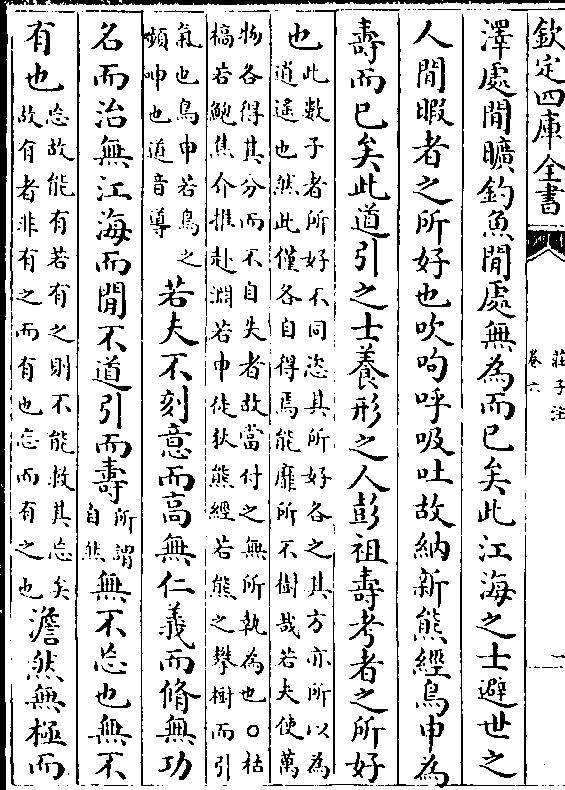 欽定四庫全書
莊子注
卷六
一
澤處閒曠釣魚閒處無為而已矣此江海之士避世之
人閒暇者之所好也吹呴呼吸吐故納新熊經鳥申為
壽而已矣此道引之士養形之人彭祖壽考者之所好
也
此數子者所好不同恣其所好各之其方亦所以為
逍遙也然此僅各自得焉能靡所不樹哉若夫使萬
物各得其分而不自失者故當付之無所執為也○枯
槁若鮑焦介推赴淵若申徒狄熊經若熊之攀樹而引
氣也鳥申若鳥之
頻呻也道音導
若夫不刻意而高無仁義而脩無功
名而治無江海而閒不道引而壽
所謂
自然
無不忘也無不
有也
忘故能有若有之則不能救其忘矣
故有者非有之而有也忘而有之也
澹然無極而